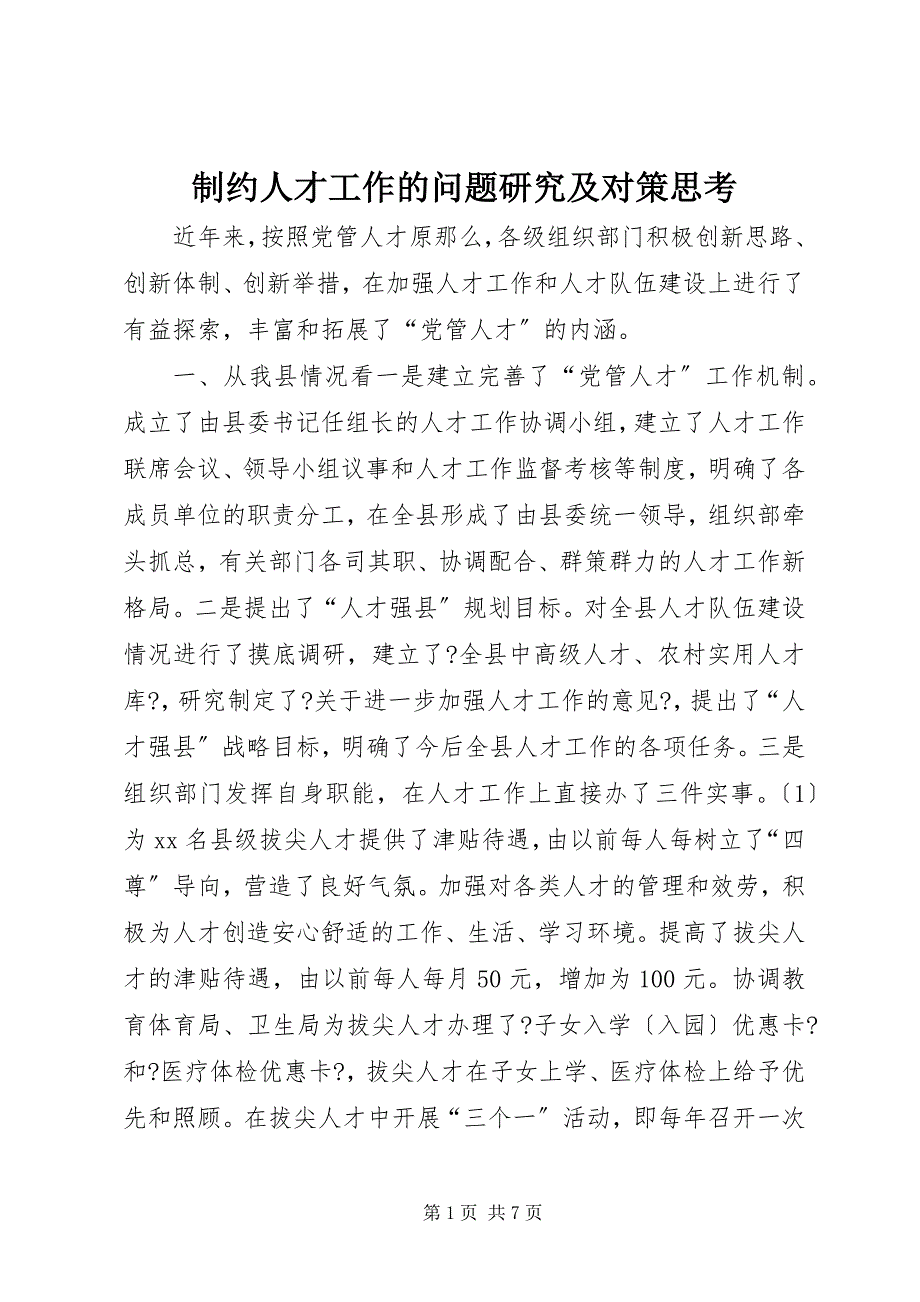 制约人才工作的问题研究及对策思考
近年来,按照党管人才原那么,各级组织部门积极创新思路、
创新体制、创新举措，在加强人才工作和人才队伍建设上进行了
有益探索，丰富和拓展了“党管人才〞的内涵。
一、从我县情况看一是建立完善了“党管人才〞工作机制。
成立了由县委书记任组长的人才工作协调小组,建立了人才工作
联席会议、领导小组议事和人才工作监督考核等制度，明确了各
成员单位的职责分工，在全县形成了由县委统一领导，组织部牵
头抓总，有关部门各司其职、协调配合、群策群力的人才工作新
格局。二是提出了“人才强县〞规划目标。对全县人才队伍建设
情况进行了摸底调研，建立了?全县中高级人才、农村实用人才
库?,研究制定了?关于进一步加强人才工作的意见?,提出了“人
才强县〞战略目标，明确了今后全县人才工作的各项任务。三是
组织部门发挥自身职能，在人才工作上直接办了三件实事。〔1〕
为 xx 名县级拔尖人才提供了津贴待遇,由以前每人每树立了“四
尊〞导向，营造了良好气氛。加强对各类人才的管理和效劳，积
极为人才创造安心舒适的工作、生活、学习环境。提高了拔尖人
才的津贴待遇，由以前每人每月 50 元，增加为 100 元。协调教
育体育局、卫生局为拔尖人才办理了?子女入学〔入园〕优惠卡?
和?医疗体检优惠卡?，拔尖人才在子女上学、医疗体检上给予优
先和照顾。在拔尖人才中开展“三个一〞活动，即每年召开一次
第 1 页 共 7 页